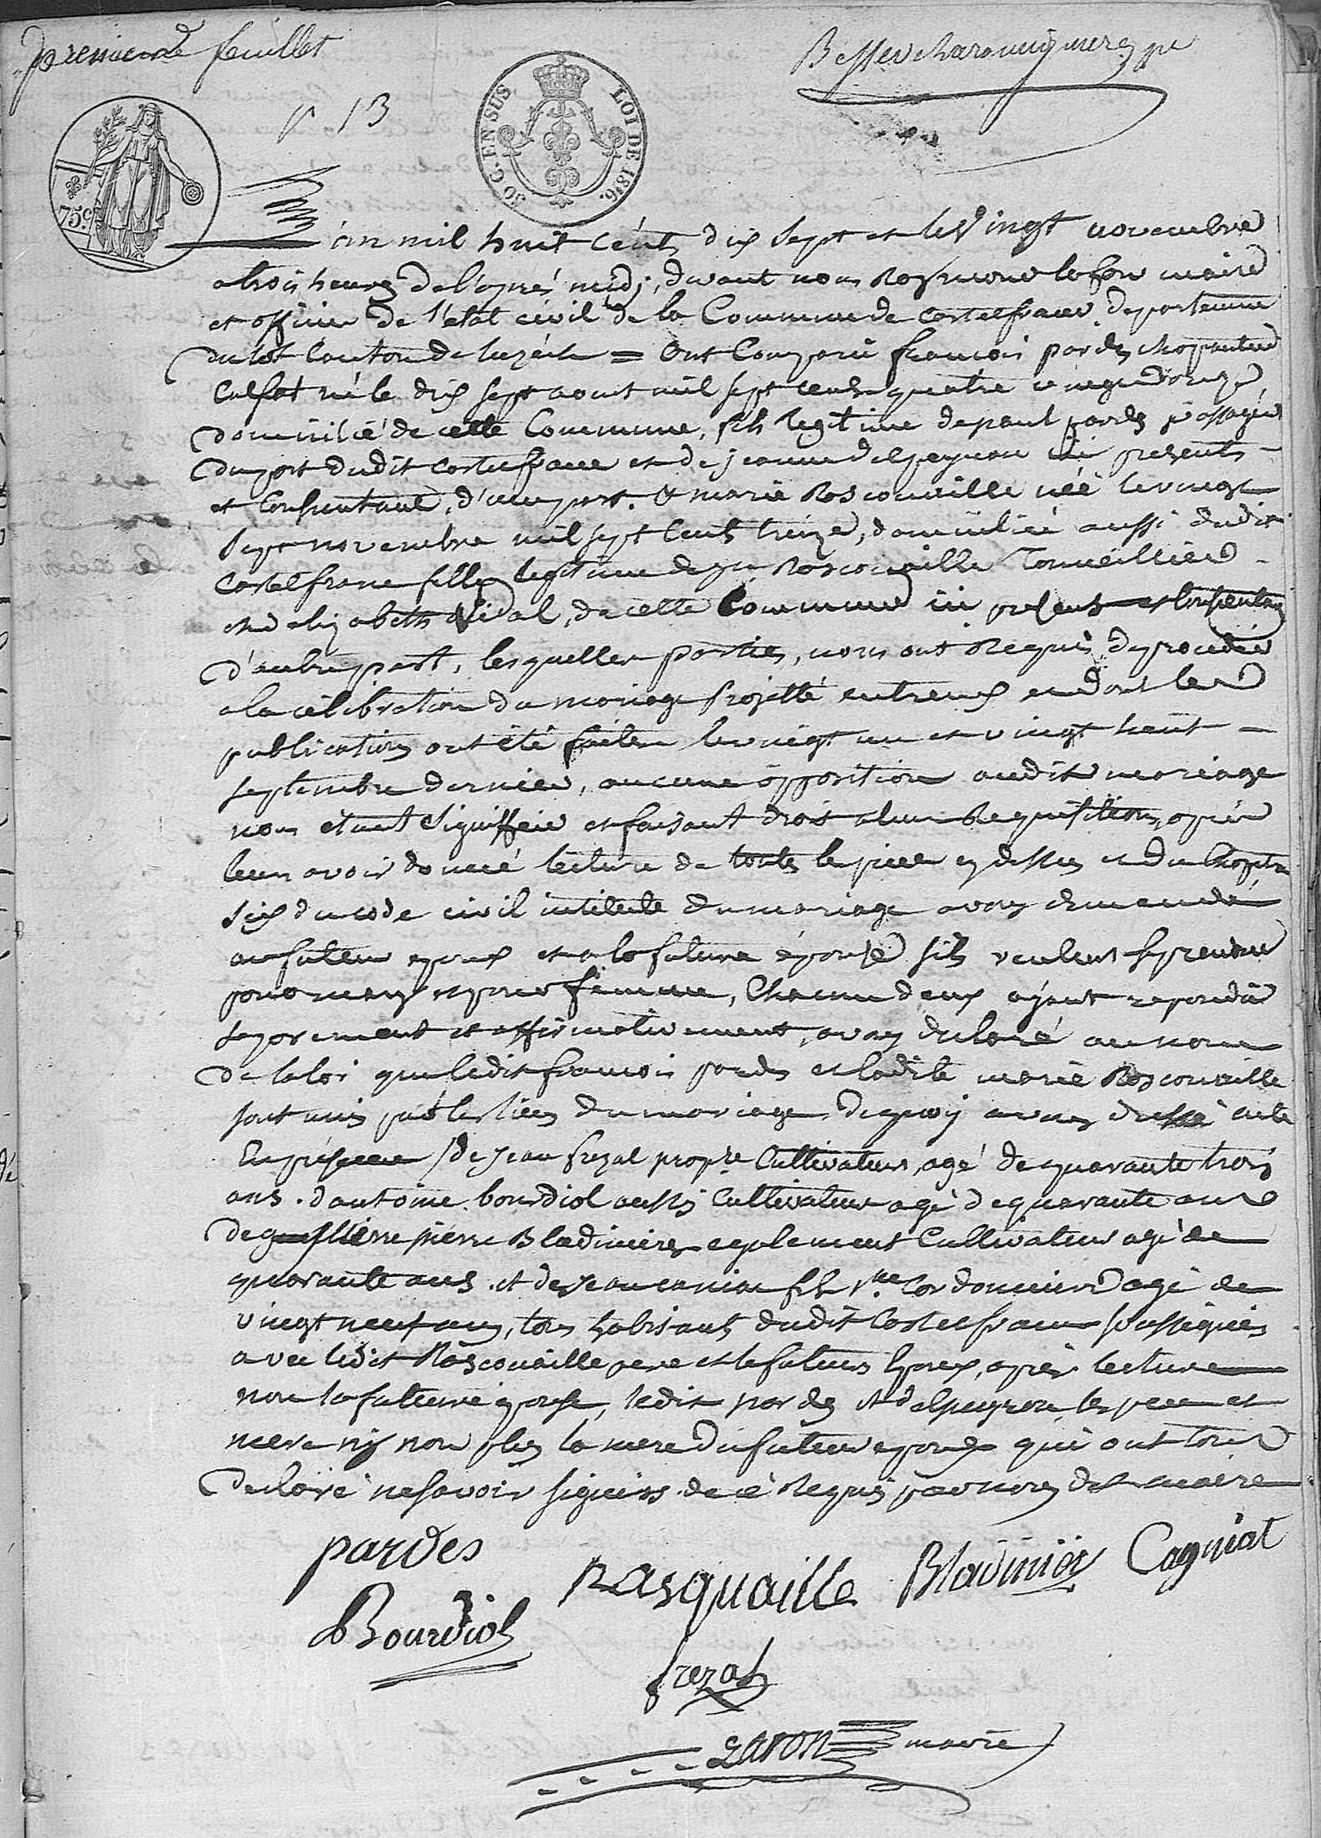 premier feuillet
n° 13
75 c
30 C. EN SUS
LOI DE 1816.
L'an mil huit cent dix sept et le Vingt novembre
a trois heures de l'après midi, devant nous Raymond lafon maire
et officier de l'etat civil de la Commune de castelfranc departement
du lot Canton de luzech = Ont Comparu françois pardes charpentier
Calfat né le dix sept aout mil sept cents quatre vingt douze,
domicilié de cette Commune, fils legitime de paul pardes passager
du port dudit castelfranc et de jeanne delpeyrou ici presents
et Consentant, d'une part. & marie Rascouaille née le vingt
Sept novembre mil sept Cents treize, domiciliée aussi dudit
Castelfranc fille legitime de Rascouaille Conseillier
et d'elizabeth Vidal, de cette Commune ici present et Consentant
d'autre part, lesquelles parties, nous ont Requis de procéder
a la célébration du mariage projetté entr'eux et dont les
publications ont été faites le vingt un et vingt huit
septembre dernier, aucune opposition audit mariage
nous étant Signiffiée et faisant droit a leur Requisition, après
leur avoir donné lecture de toutes les pieces cy dessus et du Chapitre
Six du code civil intitulé du mariage avons demandé
au futeur epoux et a la future épouse s'ils veulent se prendre
pour mary et pour femme, Chacun deux ayant repondu
separement et affirmativement, avons declaré au nom
de la loi que ledit françois pardes et ladite marie Rascouaille
sont unis par les liens du mariage de quoi avons dressé acte
En présence de jean frezal propre. Cultivateur, agé de quarante trois
ans. d'antoine bourdiol aussi Cultivateur agé de quarante ans
de pierre Bladinières egalement Cultivateur agé de
quarante ans. et de jean caniac fils Cordonnier agé de
vingt neuf ans, tous habitants dudit Castelfranc soussignés
avec ledit Rascouaille pere et le futeur Epoux, après lecture
non la future epouse, ledit pardes et delpeyrou, les pere et
mere ny non plus la mere du futeur epoux qui ont tous
declaré ne savoir signer de ce Requis par nous dit maire
pardes
Rasquaille
Bladinier
Cagniat
Bourdiol
frezal
Lafon maire